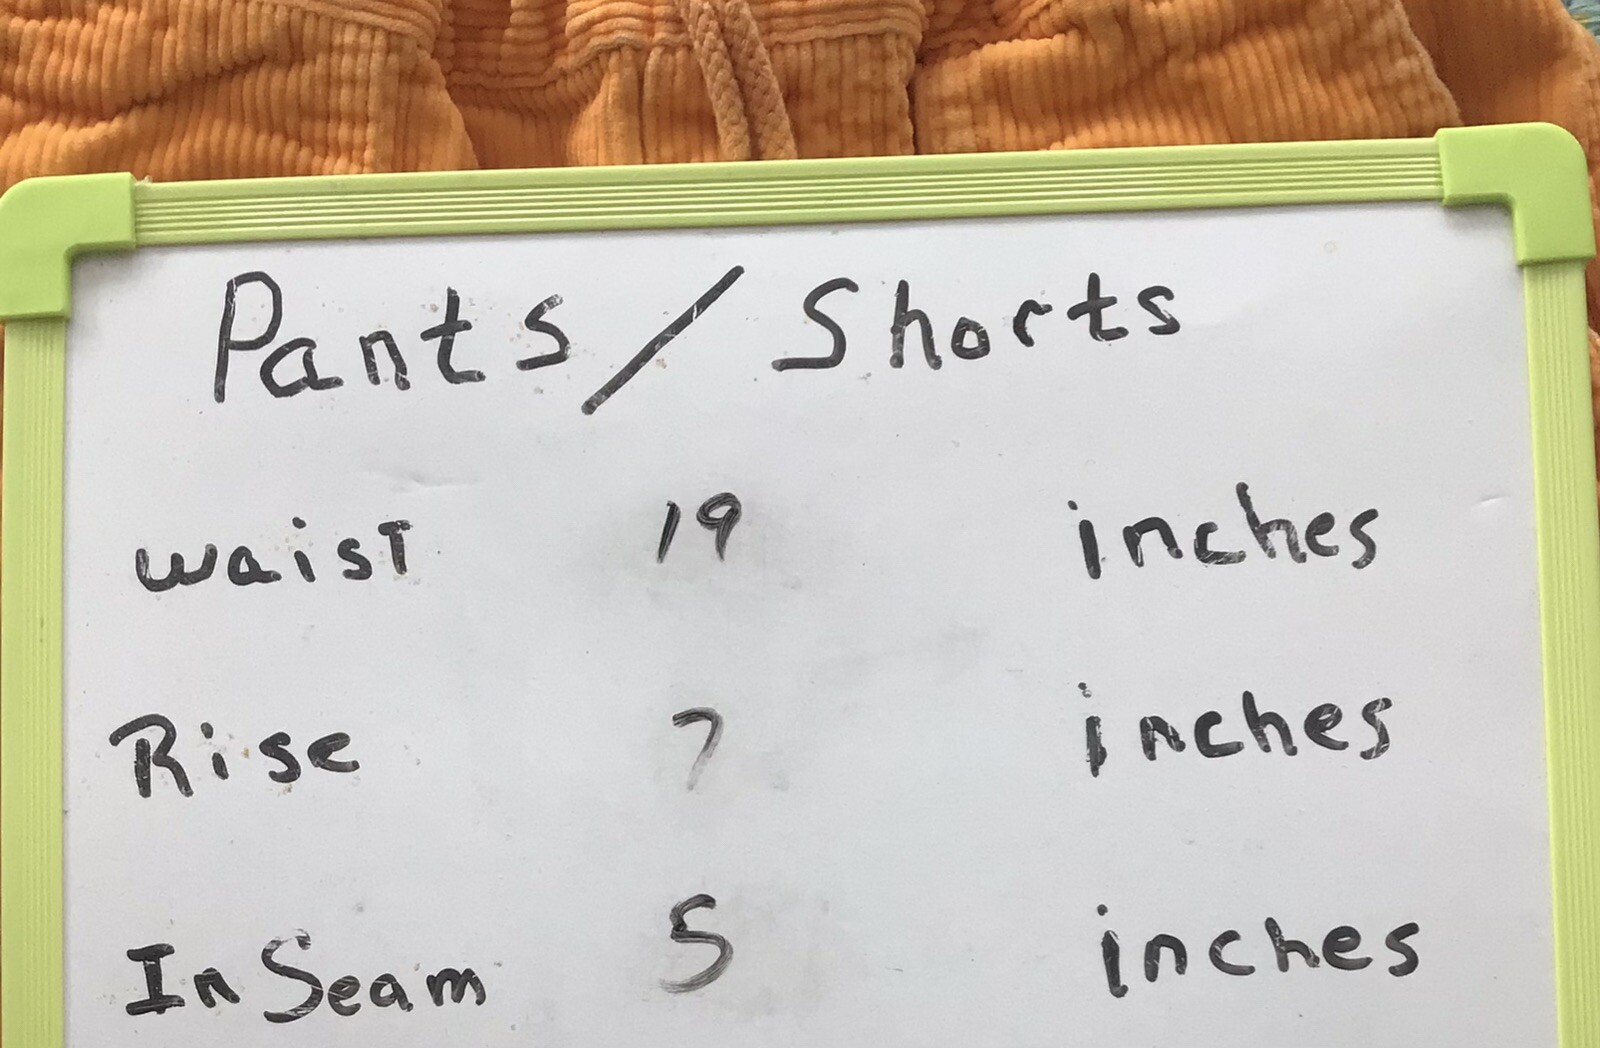 Pants / Shorts
waist 19 inches
Rise 7 inches
InSeam 5 inches